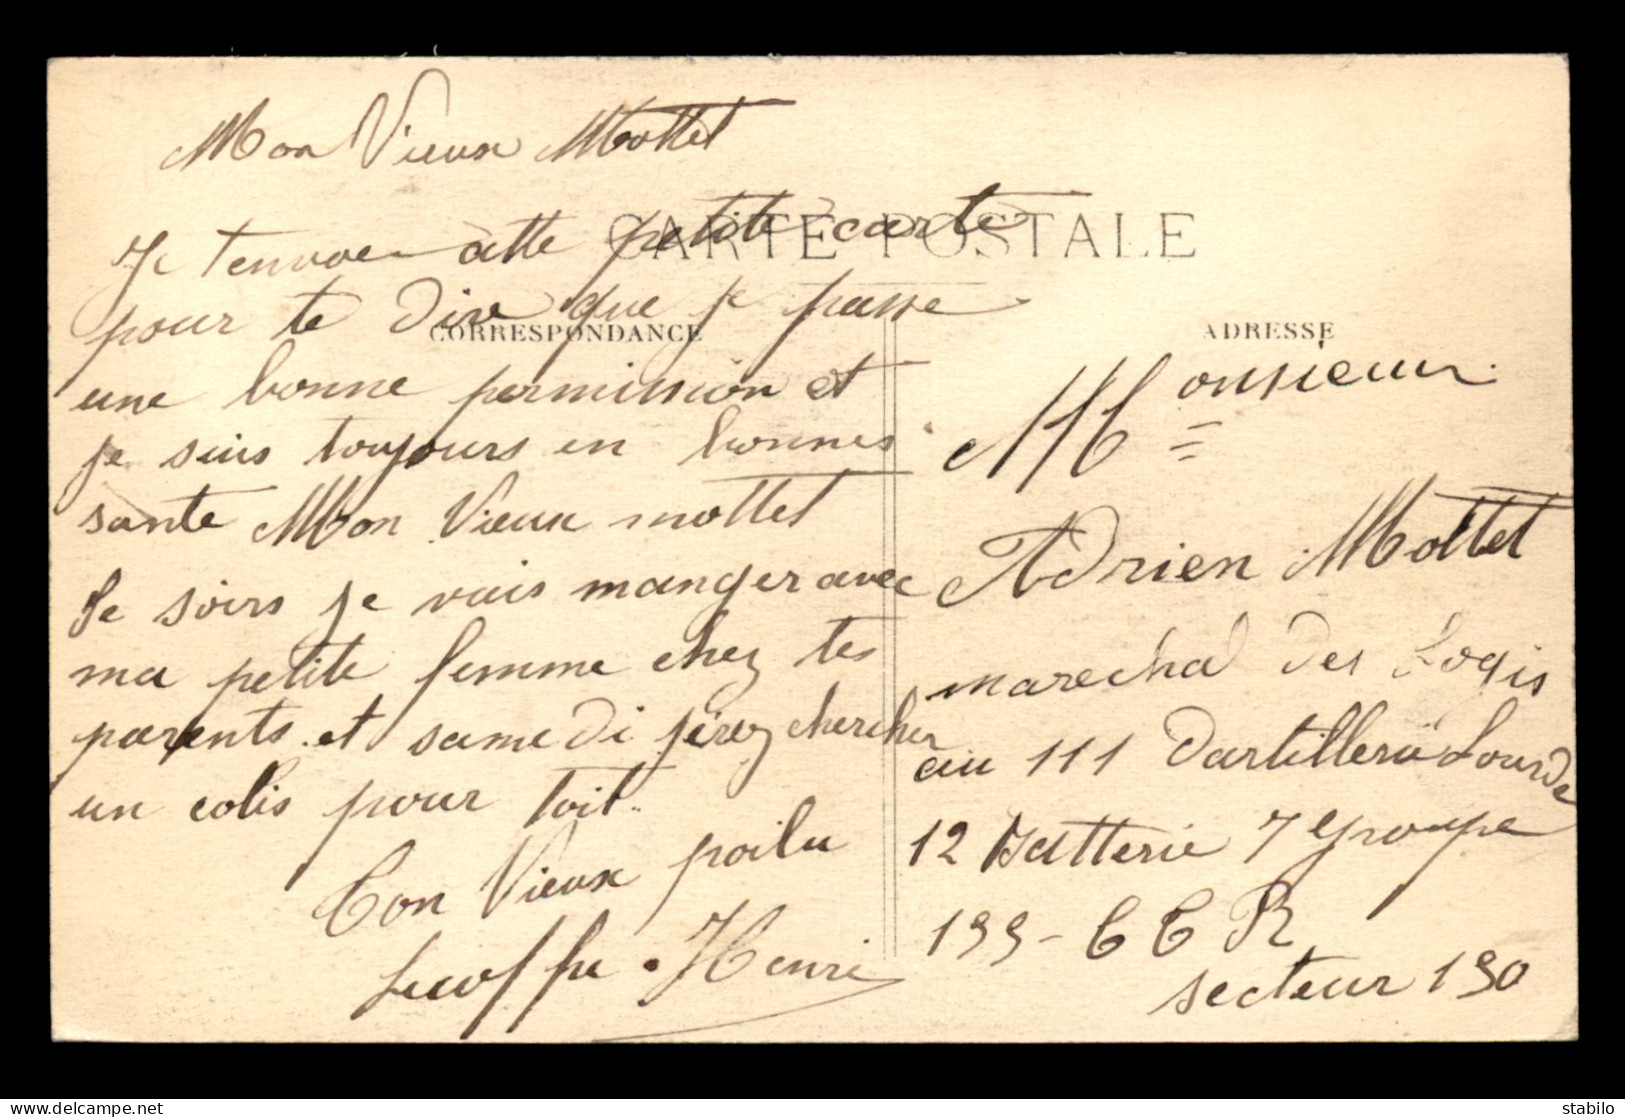 Mon Vieux Mottet
CARTE POSTALE
Je tenvoe cette petite carte
pour te dire que je passe
CORRESPONDANCE
une bonne permission et
je suis toujours en bonnes
sante Mon Vieux mottet
se soirs je vais manger avec
ma petite femme chez tes
parents et samedi jirez chercher
un colis pour toit
Ton Vieux poilu
Henri
ADRESSE
Monsieur
Adrien Mottet
marechal des Logis
au 111 Dartillerie Lourde
12 Batterie 7 groupe
secteur 190
stabilo
www.delcampe.net